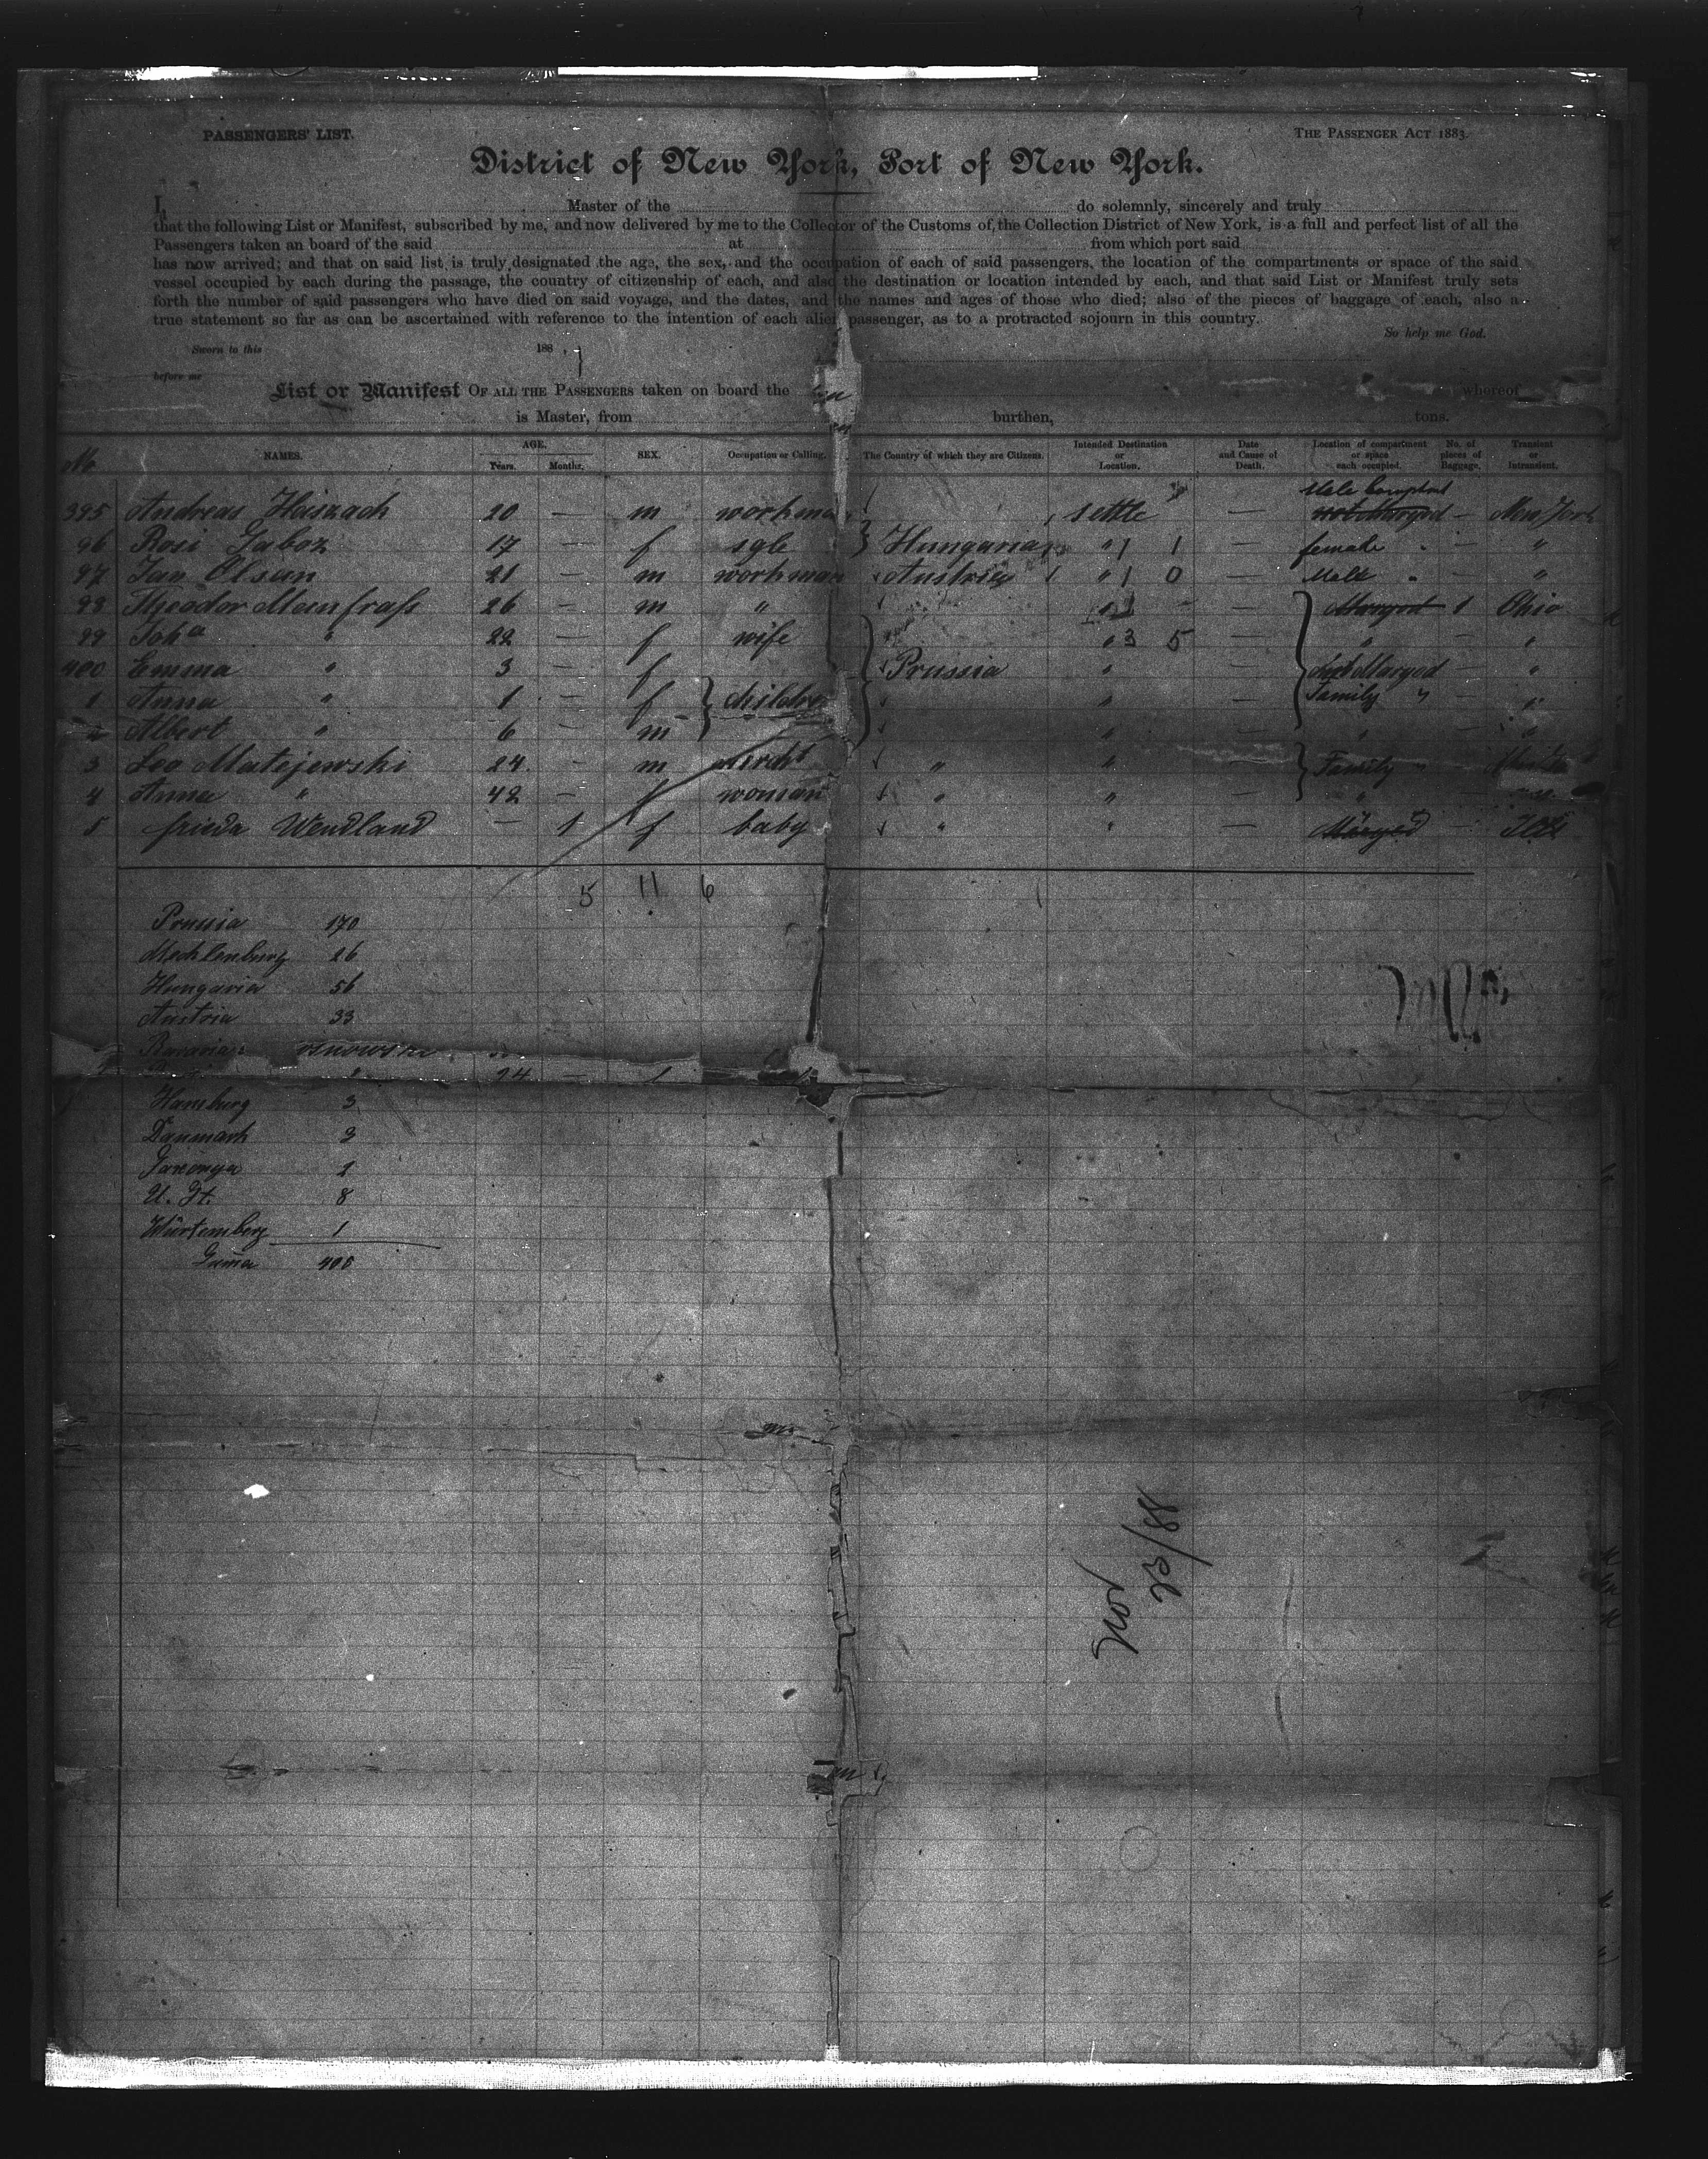 PASSENGERS' LIST.
THE PASSENGER ACT 1883.
District of New York, Port of New York.
I, Master of the do solemnly, sincerely and truly
that the following List or Manifest, subscribed by me, and now delivered by me to the Collector of the Customs of the Collection District of New York, is a full and perfect list of all the
Passengers taken an board of the said at from which port said
has now arrived; and that on said list is truly designated the age, the sex, and the occupation of each of said passengers, the location of the compartments or space of the said
vessel occupied by each during the passage, the country of citizenship of each, and also the destination or location intended by each, and that said List or Manifest truly sets
forth the number of said passengers who have died on said voyage, and the dates, and the names and ages of those who died; also of the pieces of baggage of each, also a
true statement so far as can be ascertained with reference to the intention of each alien passenger, as to a protracted sojourn in this country.
So help me God.
Sworn to this 188 ,
before me
List or Manifest OF ALL THE PASSENGERS taken on board the whereof
is Master, from burthen, tons.
No NAMES. AGE. Years. Months. SEX. Occupation or Calling. The Country of which they are Citizens. Intended Destination or Location. Date and Cause of Death. Location of compartment or space each occupied. No. of pieces of Baggage. Transient or Intransient.
395 Andreas Haiszach 20 — m workman settle — Male — New York
96 Rosi Gaboz 17 — f sgle Hungaria " 1 1 — female " — "
97 Jan Olsan 21 — m workman Austria " 1 0 — Male " — "
98 Theodor Meunfrass 26 — m " — 1 Ohio
99 Joha " 22 — f wife " 3 5 — " "
400 Emma " 3 — f Prussia " — "
1 Anna " 1 — f children " — Family " — "
2 Albert " 6 — m " — " "
3 Leo Matejewski 24 — m " " — Family "
4 Anna " 42 — f woman " " — "
5 frieda Wendland — 1 f baby " " — —
5 11 6
Prussia 170
Mecklenburg 26
Hungaria 56
Austria 33
Bavaria
24 —
Hamburg 3
Danmark 3
U. St. 8
Würtemberg 1
Suma 405